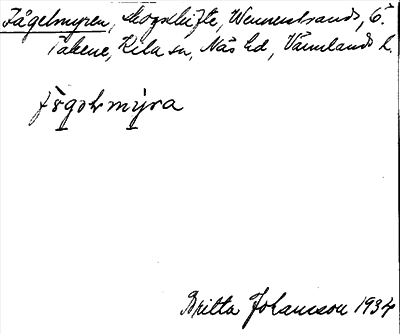 Fågelmyren, skogsskifte, Wennersbrands, Ö.
Takene, Kila sn, Näs hd, Värmlands l.
fɔ̀goḷmỳra
Britta Johansson 1934